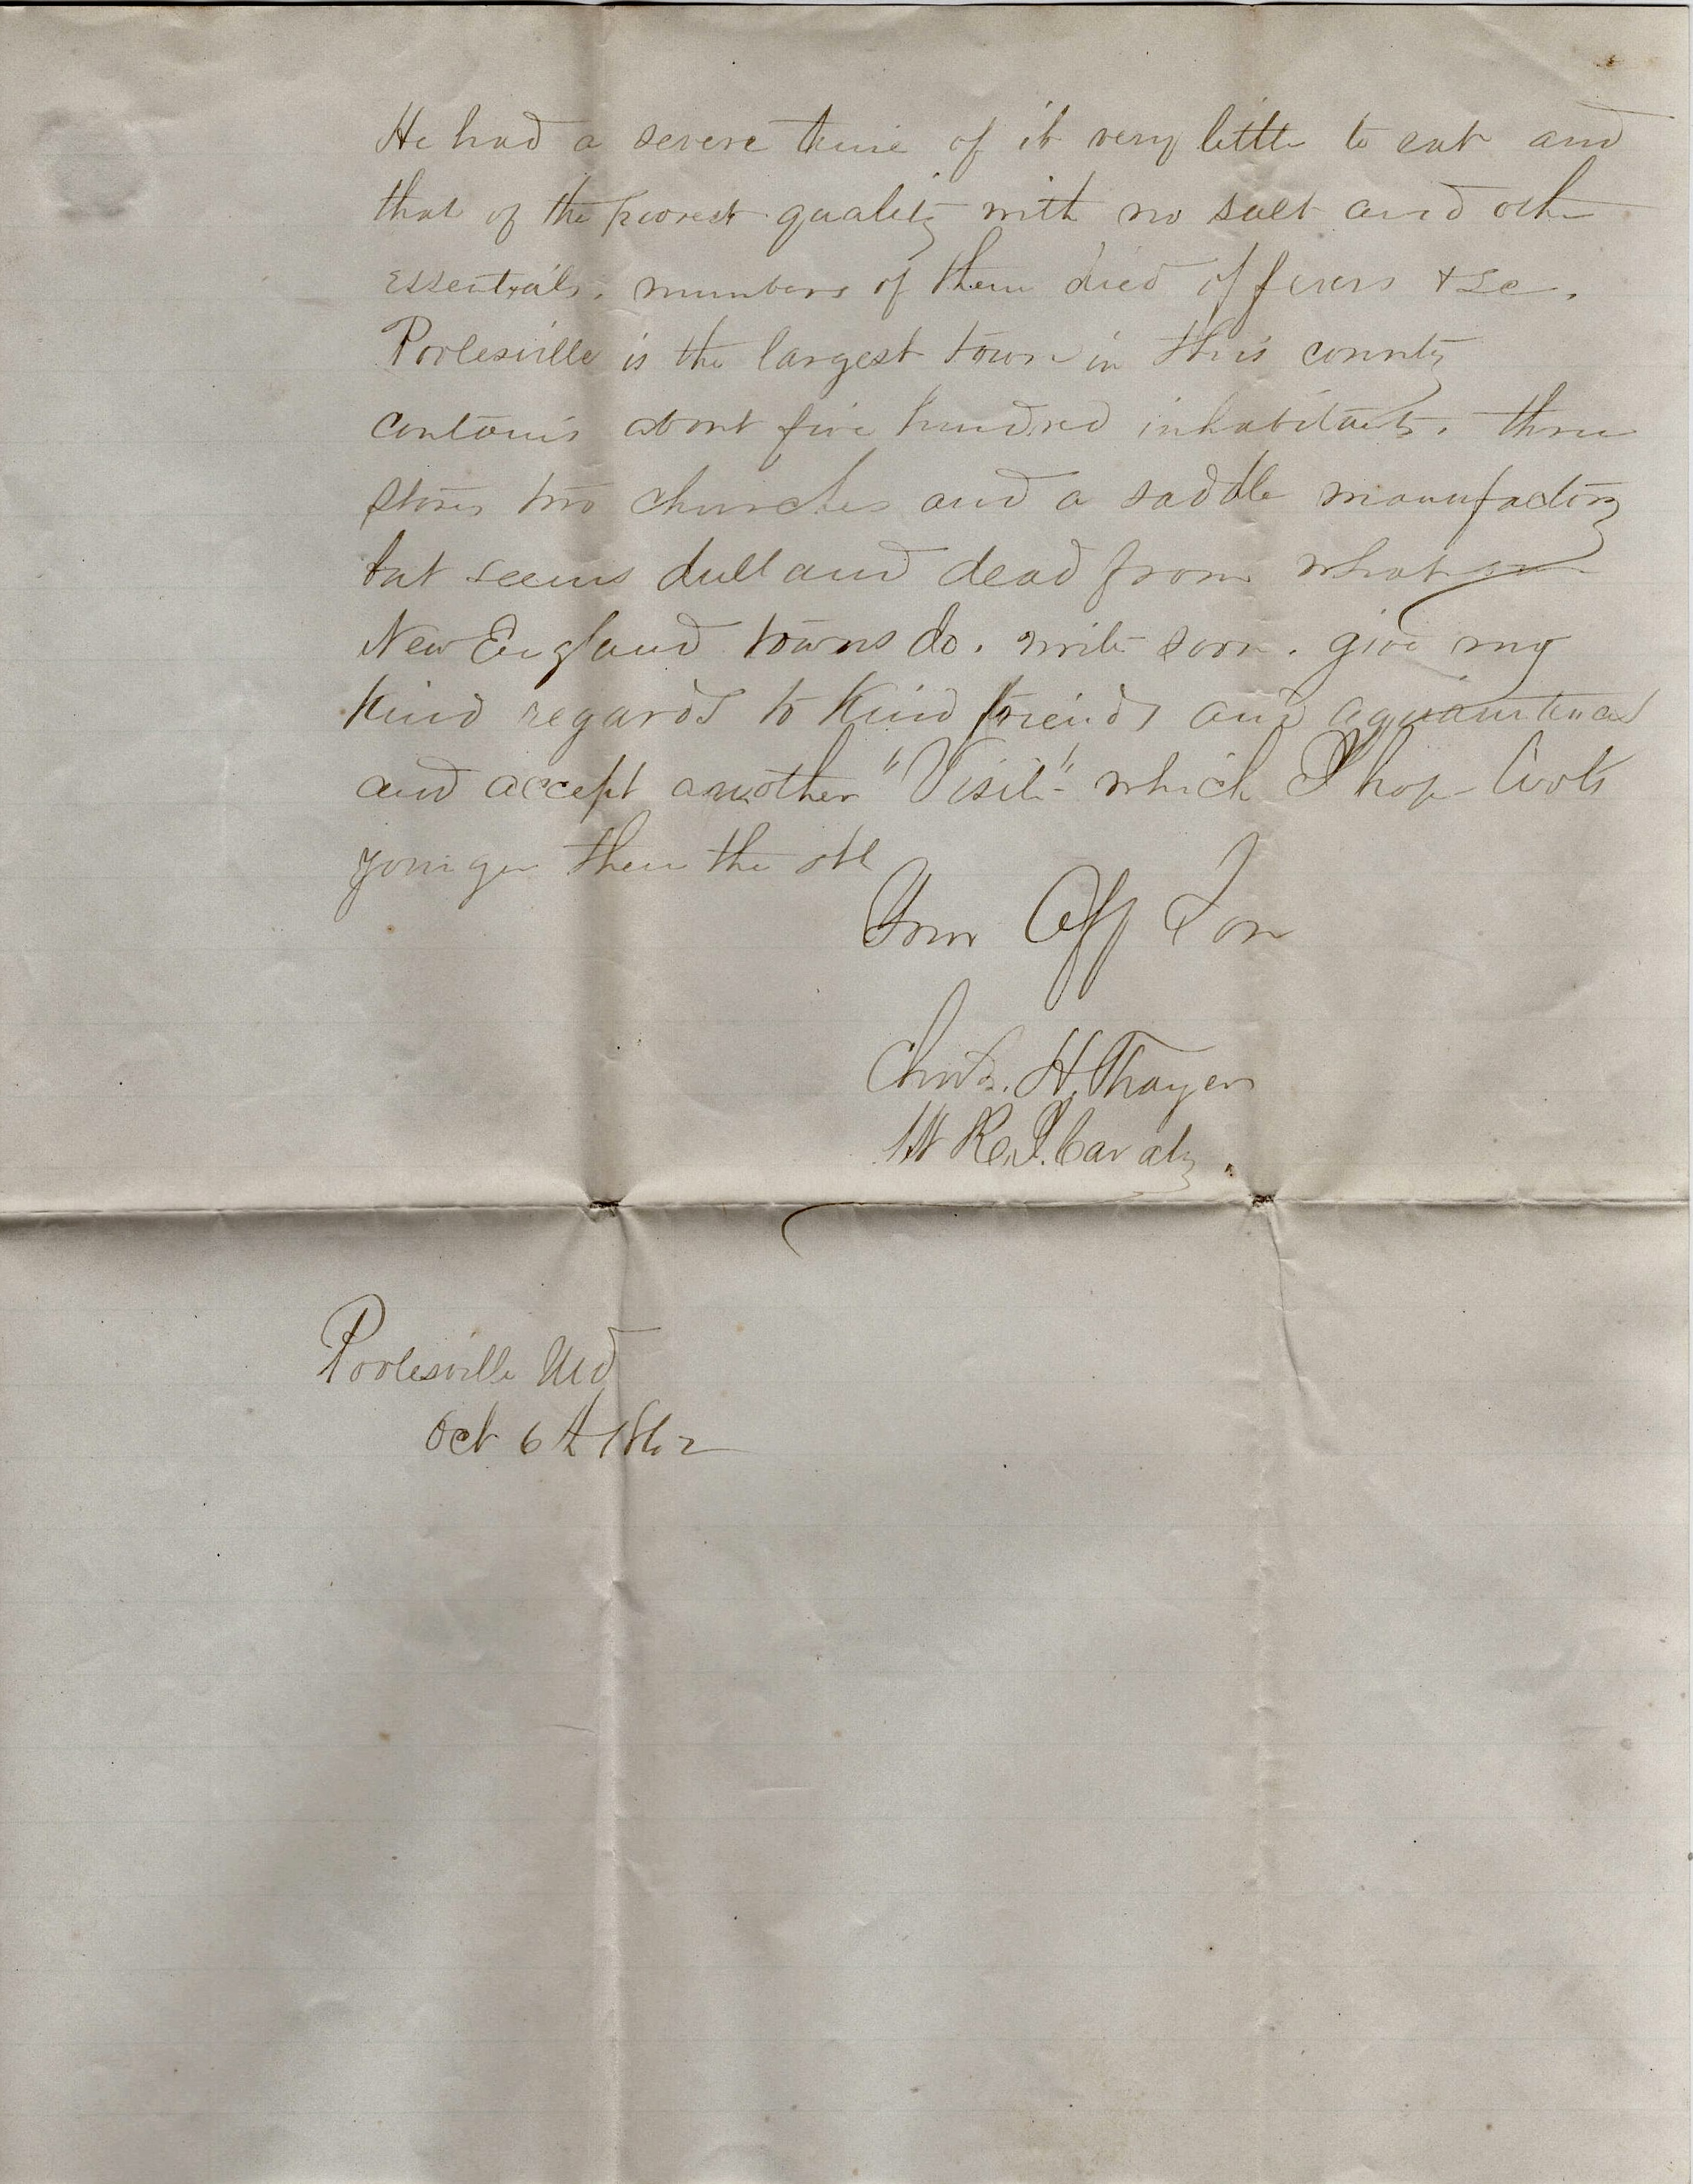 He had a severe time of it very little to eat and
that of the poorest quality with no salt and other
essentials. numbers of them died of fevers &c.
Poolesville is the largest town in this county
contains about five hundred inhabitants. three
stores two churches and a saddle manufactory
but seems dull and dead from what our
New England towns do. write soon. give my
kind regards to kind friends and aquaintances
and accept another "Visit" which I hope looks
younger then the old
Your Aff Son
Chas. H. Thayer
1st R.I. Cavalry.
Poolesville Md
Oct 6th 1862